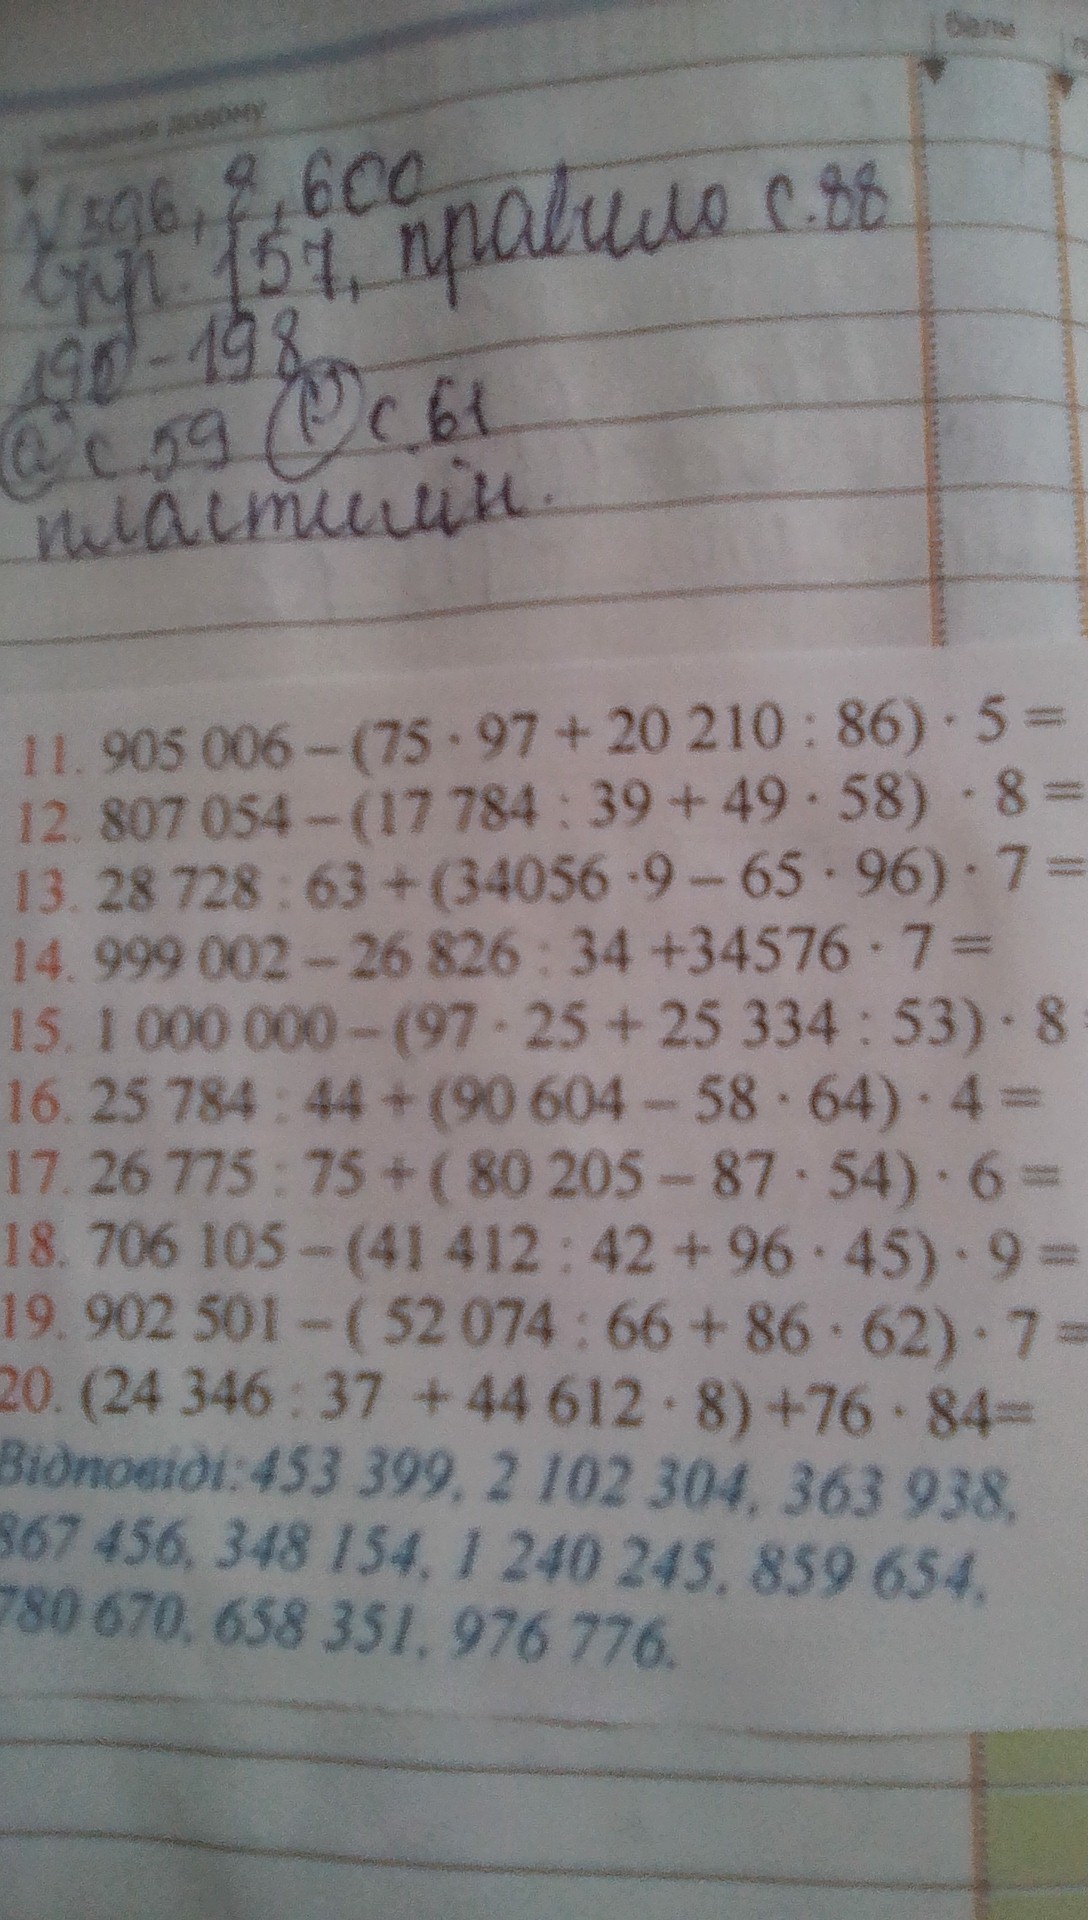 бали
завдання додому
№ 596, 8, 600
стр. 157, правило с.88
190-198
с.59 с.61
пластилін.
11. 905 006 – (75 · 97 + 20 210 : 86) · 5 =
12. 807 054 – (17 784 : 39 + 49 · 58) · 8 =
13. 28 728 : 63 + (34056 ·9 – 65 · 96) · 7 =
14. 999 002 – 26 826 : 34 +34576 · 7 =
15. 1 000 000 – (97 · 25 + 25 334 : 53) · 8
16. 25 784 : 44 + (90 604 – 58 · 64) · 4 =
17. 26 775 : 75 + ( 80 205 – 87 · 54) · 6 =
18. 706 105 – (41 412 : 42 + 96 · 45) · 9 =
19. 902 501 – ( 52 074 : 66 + 86 · 62) · 7 =
20. (24 346 : 37 + 44 612 · 8) +76 · 84=
Відповіді: 453 399, 2 102 304, 363 938,
867 456, 348 154, 1 240 245, 859 654,
780 670, 658 351, 976 776.